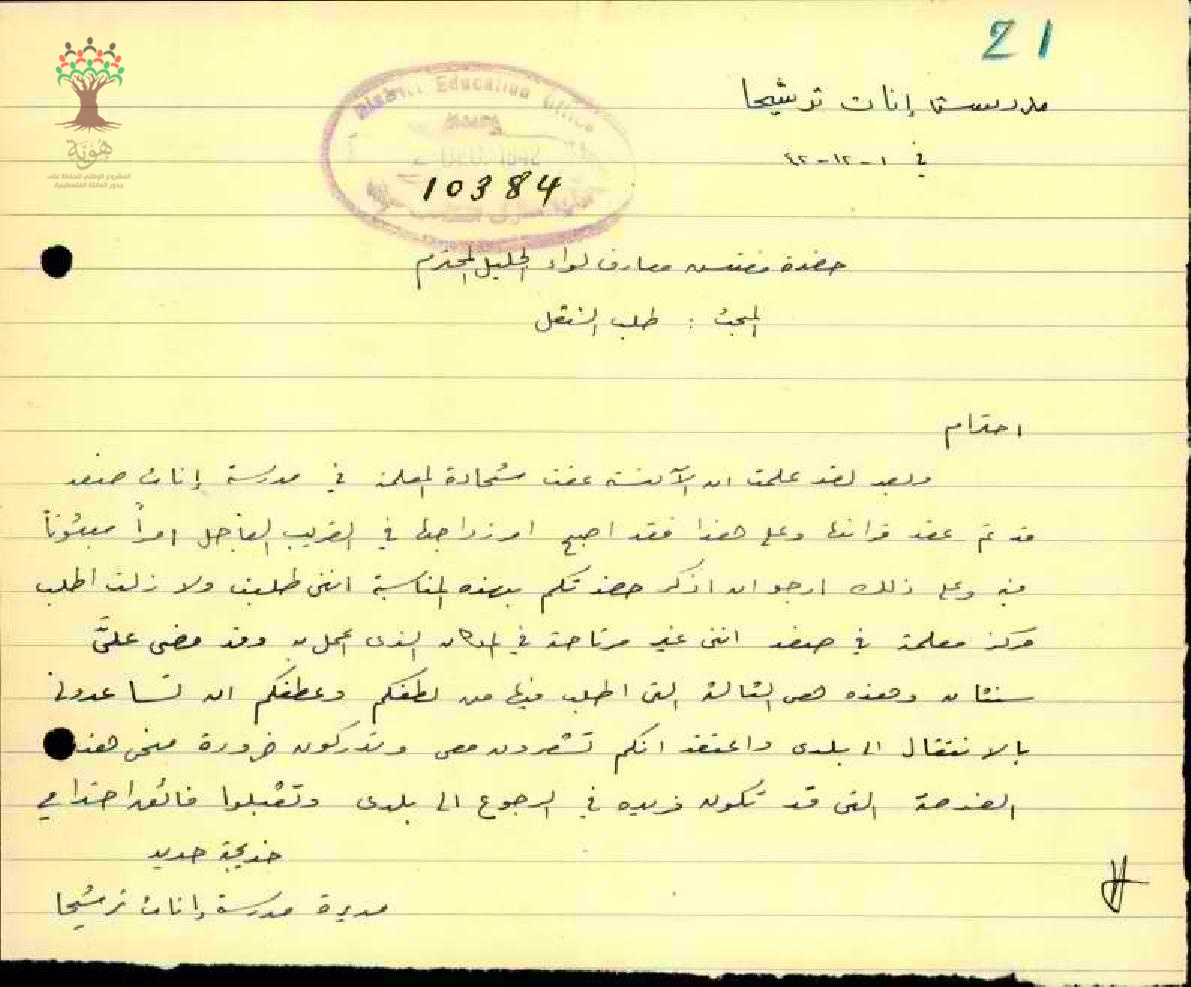 21
مدرسة إناث ترشيحا
في ١-١٢-٤٢
District Education Office
2 DEC. 1942
10384
هُويّة
المشروع الوطني للحفاظ على
جذور العائلة الفلسطينية
حضرة مفتش معارف لواء الجليل المحترم
المبحث : طلب التنقل
احترام
وبعد لقد علمت ان الآنسة عفت شحادة المعلمة في مدرسة إناث صفد
قد تم عقد قرانها وعلى هذا فقد اصبح امر زواجها في القريب العاجل امراً مبتوتاً
فيه وعلى ذلك ارجو ان اذكر حضرتكم بهذه المناسبة انني طلبت ولا زلت اطلب
مركز معلمة في صفد انني غير مرتاحة في المكان الذي اعمل به وقد مضى عليَّ
سنتان وهذه هي الثالثة التي اطلب فيها من لطفكم وعطفكم ان تساعدوني
بالانتقال الى بلدي واعتقد انكم تشعرون معي وتدركون ضرورة منحي هذه
الفرصة التي قد تكون فريده في الرجوع الى بلدي وتقبلوا فائق احترامي
خديجة حديد
مديرة مدرسة إناث ترشيحا